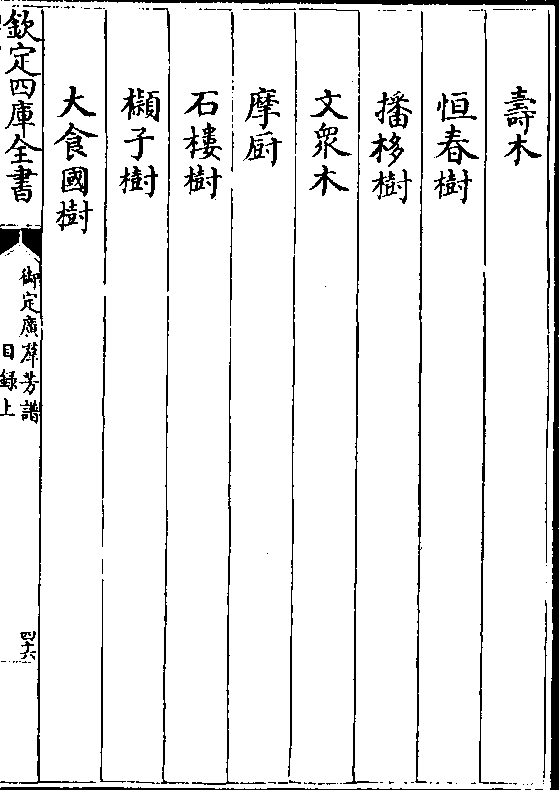 壽木
恒春樹
播移樹
文衆木
摩厨
石樓樹
櫴子樹
大食國樹
欽定四庫全書
御定廣羣芳譜
目錄上
四十六